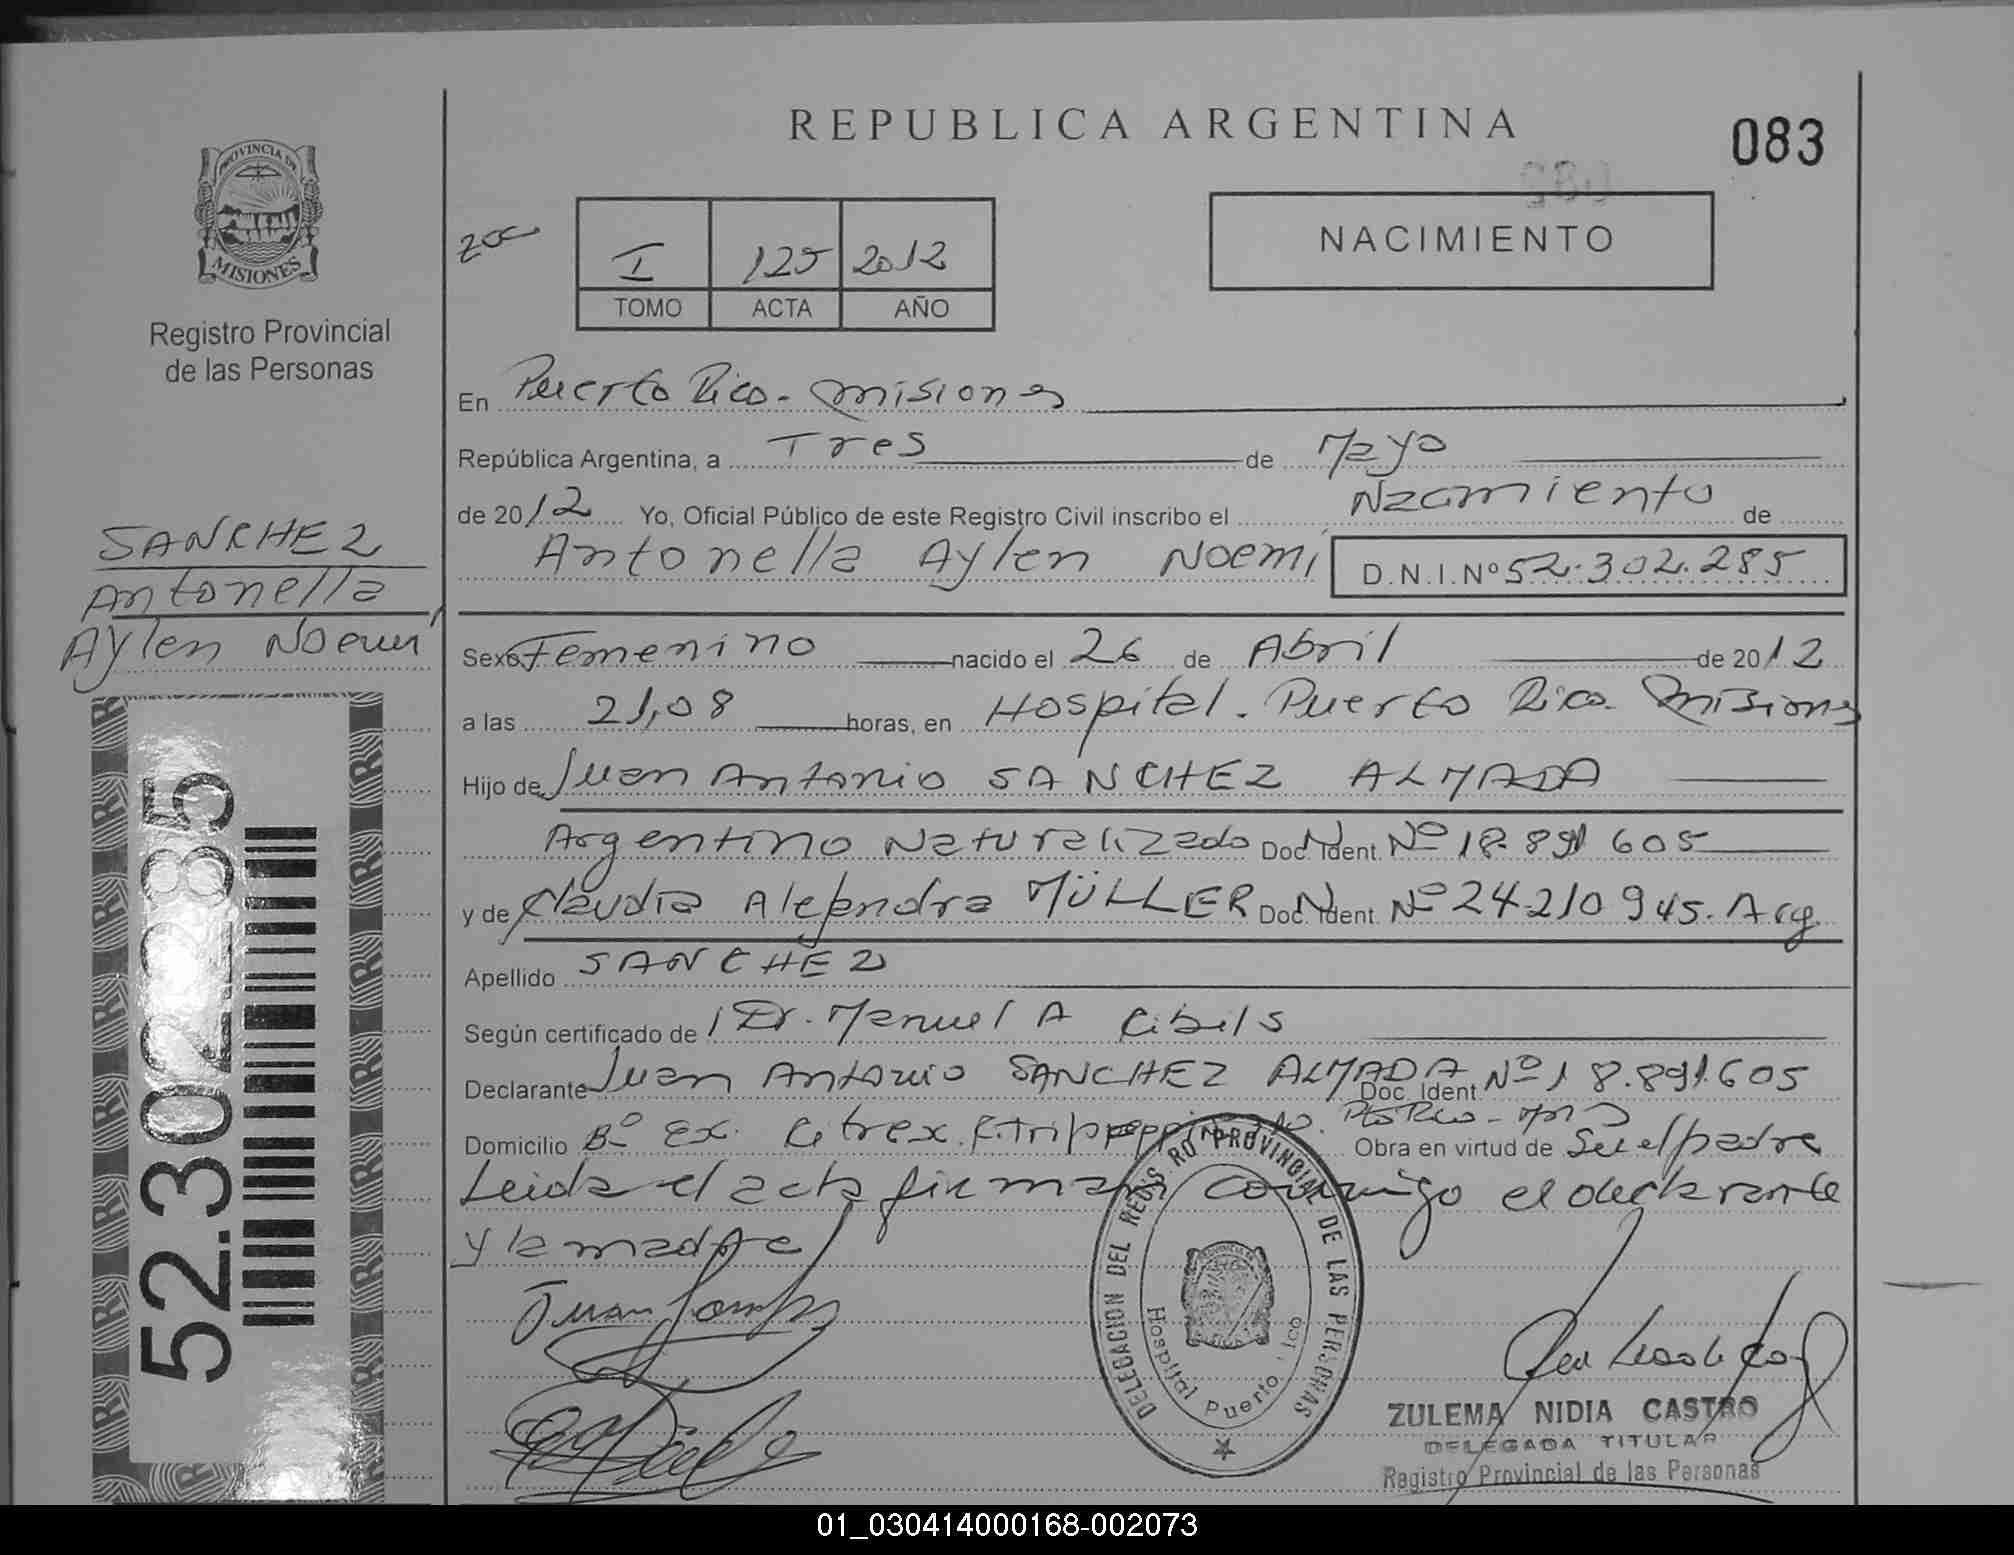 REPUBLICA ARGENTINA
083
PROVINCIA DE
MISIONES
Registro Provincial
de las Personas
I 125 2012
TOMO ACTA AÑO
NACIMIENTO
En Puerto Rico - Misiones
República Argentina, a Tres de Mayo
de 2012 Yo, Oficial Público de este Registro Civil inscribo el Nacimiento de
Antonella Aylen Noemí D.N.I.Nº 52.302.285
SANCHEZ
Antonella
Aylen Noemí
Sexo Femenino nacido el 26 de Abril de 2012
a las 21,08 horas, en Hospital. Puerto Rico. Misiones
Hijo de Juan Antonio SANCHEZ ALMADA
Argentino Naturalizado Doc. Ident. Nº 18.891605
y de Claudia Alejandra MÜLLER Doc. Ident. Nº 24.210945. Arg.
Apellido SANCHEZ
Según certificado de Dr. Manuel A Cibils
Declarante Juan Antonio SANCHEZ ALMADA Doc. Ident Nº 18.891.605
Domicilio Bº Ex. Citrex. Obra en virtud de Ser el padre
Leida el acta firman conmigo el declarante
y la madre
52.302.285
DELEGACION DEL REGISTRO PROVINCIAL DE LAS PERSONAS
Hospital Puerto Rico
ZULEMA NIDIA CASTRO
DELEGADA TITULAR
Registro Provincial de las Personas
01_030414000168-002073